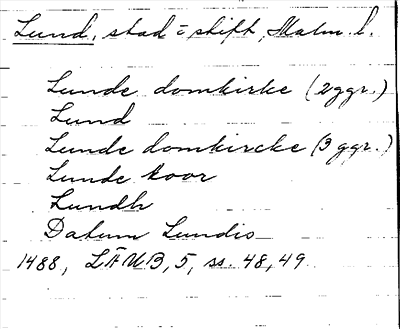 Lund, stad = stift, Malm. l.
Lunde domkirke (2 ggr.)
Lund
Lunde domkircke (3 ggr.)
Lunde koor
Lundh
Datum Lundis
1488, LÄUB, 5, ss. 48, 49